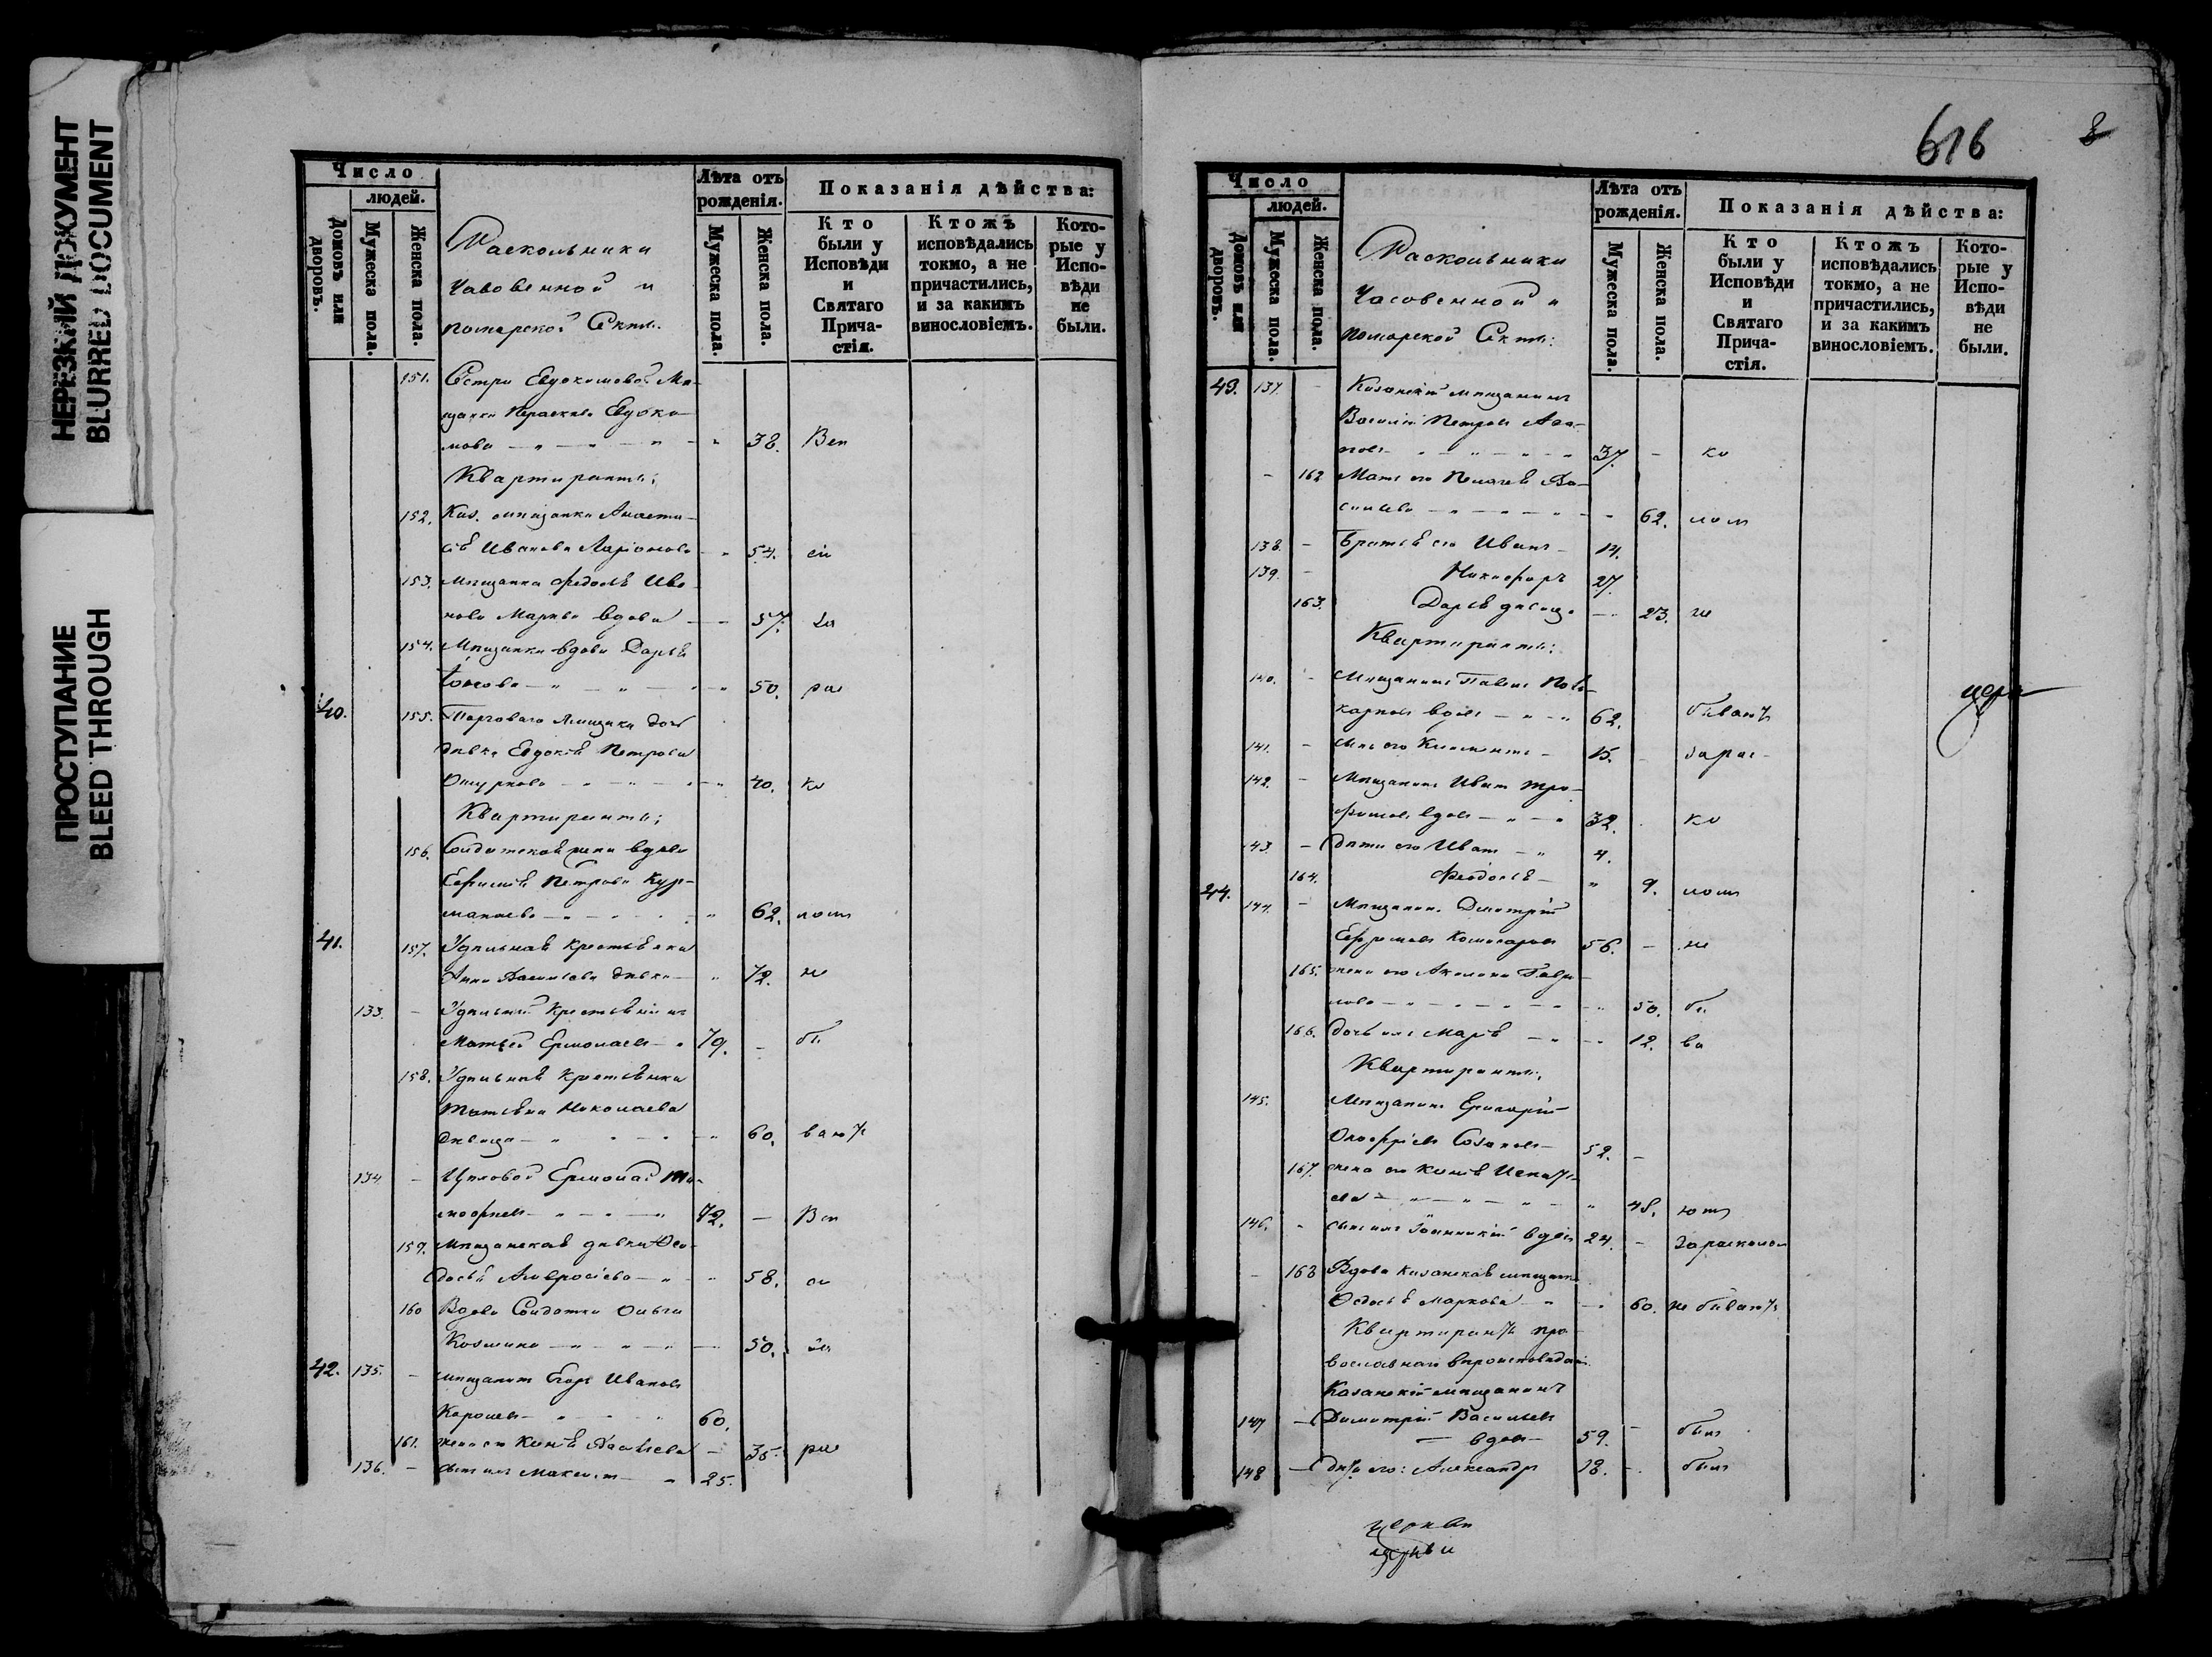 НЕРЕЗКИЙ ДОКУМЕНТ
BLURRED DOCUMENT
ПРОСТУПАНИЕ
BLEED THROUGH
Число
людей.
Домовъ или дворовъ.
Мужеска пола.
Женска пола.
Раскольники
Часовенной и
поморской Секты.
Лѣта отъ рожденія.
Мужеска пола.
Женска пола.
Показанія дѣйства:
Кто были у Исповѣди и Святаго Прича-стія.
Ктожъ исповѣдались токмо, а не причастились, и за какимъ винословіемъ.
Кото-рые у Испо-вѣди не были.
151. Сестра Евдокимова Мѣ-
щанка Параскева Евдоки-
мова 38. Вси
Квартиранты:
152. Каз. мѣщанка Анаста-
сія Иванова Ларіонова 54. сіи
153. Мѣщанка Федосья Ива-
нова Маркова вдова 57. за
154. Мѣщанка вдова Дарья
50. рас
40. 155. Торговаго дочь
дѣвка Евдокія Петрова
40. ко
Квартиранты:
156. Солдатская жена вдова
Евфимія Петрова Кур-
62. ломъ
41. 157. Удѣльная крестьянка
Анна Васильева дѣвка 72. не
133. Удѣльный крестьянинъ
Матвей Ермолаевъ 79. бы
158. Удѣльная крестьянка
Татьяна Николаева
дѣвица 60. ваютъ
134. Цѣховой Ермолай Ти-
мофеевъ 72. Вси
159. Мѣщанская дѣвка Ѳео-
досья Амвросіева 58. си
160 Вдова Солдатка Ольга
Козмина 50. за
42. 135. мѣщанинъ Егоръ Ивановъ
60.
161. жена его Ксенія 35. рас
136. сынъ ихъ Максимъ 25.
616
Число
людей.
Домовъ или дворовъ.
Мужеска пола.
Женска пола.
Раскольники
Часовенной и
поморской Секты:
Лѣта отъ рожденія.
Мужеска пола.
Женска пола.
Показанія дѣйства:
Кто были у Исповѣди и Святаго Прича-стія.
Ктожъ исповѣдались токмо, а не причастились, и за какимъ винословіемъ.
Кото-рые у Испо-вѣди не были.
43. 137. Казанскій мѣщанинъ
Василій Петровъ Ага-
повъ 37. ко
162 Мать его Пелагея Ва-
сильева 62. ломъ
138. Братья его Иванъ 14.
139. Никифоръ 27.
163. Дарья дѣвица 23. не
Квартиранты:
140. Мѣщанинъ Павелъ
вдовъ 62. бываютъ
141. сынъ его Климентъ 15. за рас
142. Мѣщанинъ Иванъ Тро-
фимовъ вдовъ 32. ко
143. дѣти его Иванъ 4.
164. Феодосья 9. ломъ
44. 144. Мѣщанинъ Димитрій
Ефремовъ Комисаровъ 56. не
165. жена его Акилина Гаври-
лова 50. бы
166. дочь ихъ Марья 12. ва
Квартиранты:
145. Мѣщанинъ Григорій
52.
167. жена его Ксенія Игнать-
ева 48. ютъ
146. сынъ ихъ Іоанникій вдовъ 24. За расколомъ
168 Вдова казанская мѣщанка
Ѳедосья Маркова 60. не бываютъ
Квартирантъ пра-
вославнаго вѣроисповѣданія
Казанскій мѣщанинъ
147 Димитрій Васильевъ
вдовъ 59. былъ
148 дѣти его: Александръ 18. былъ
церкви
церкви